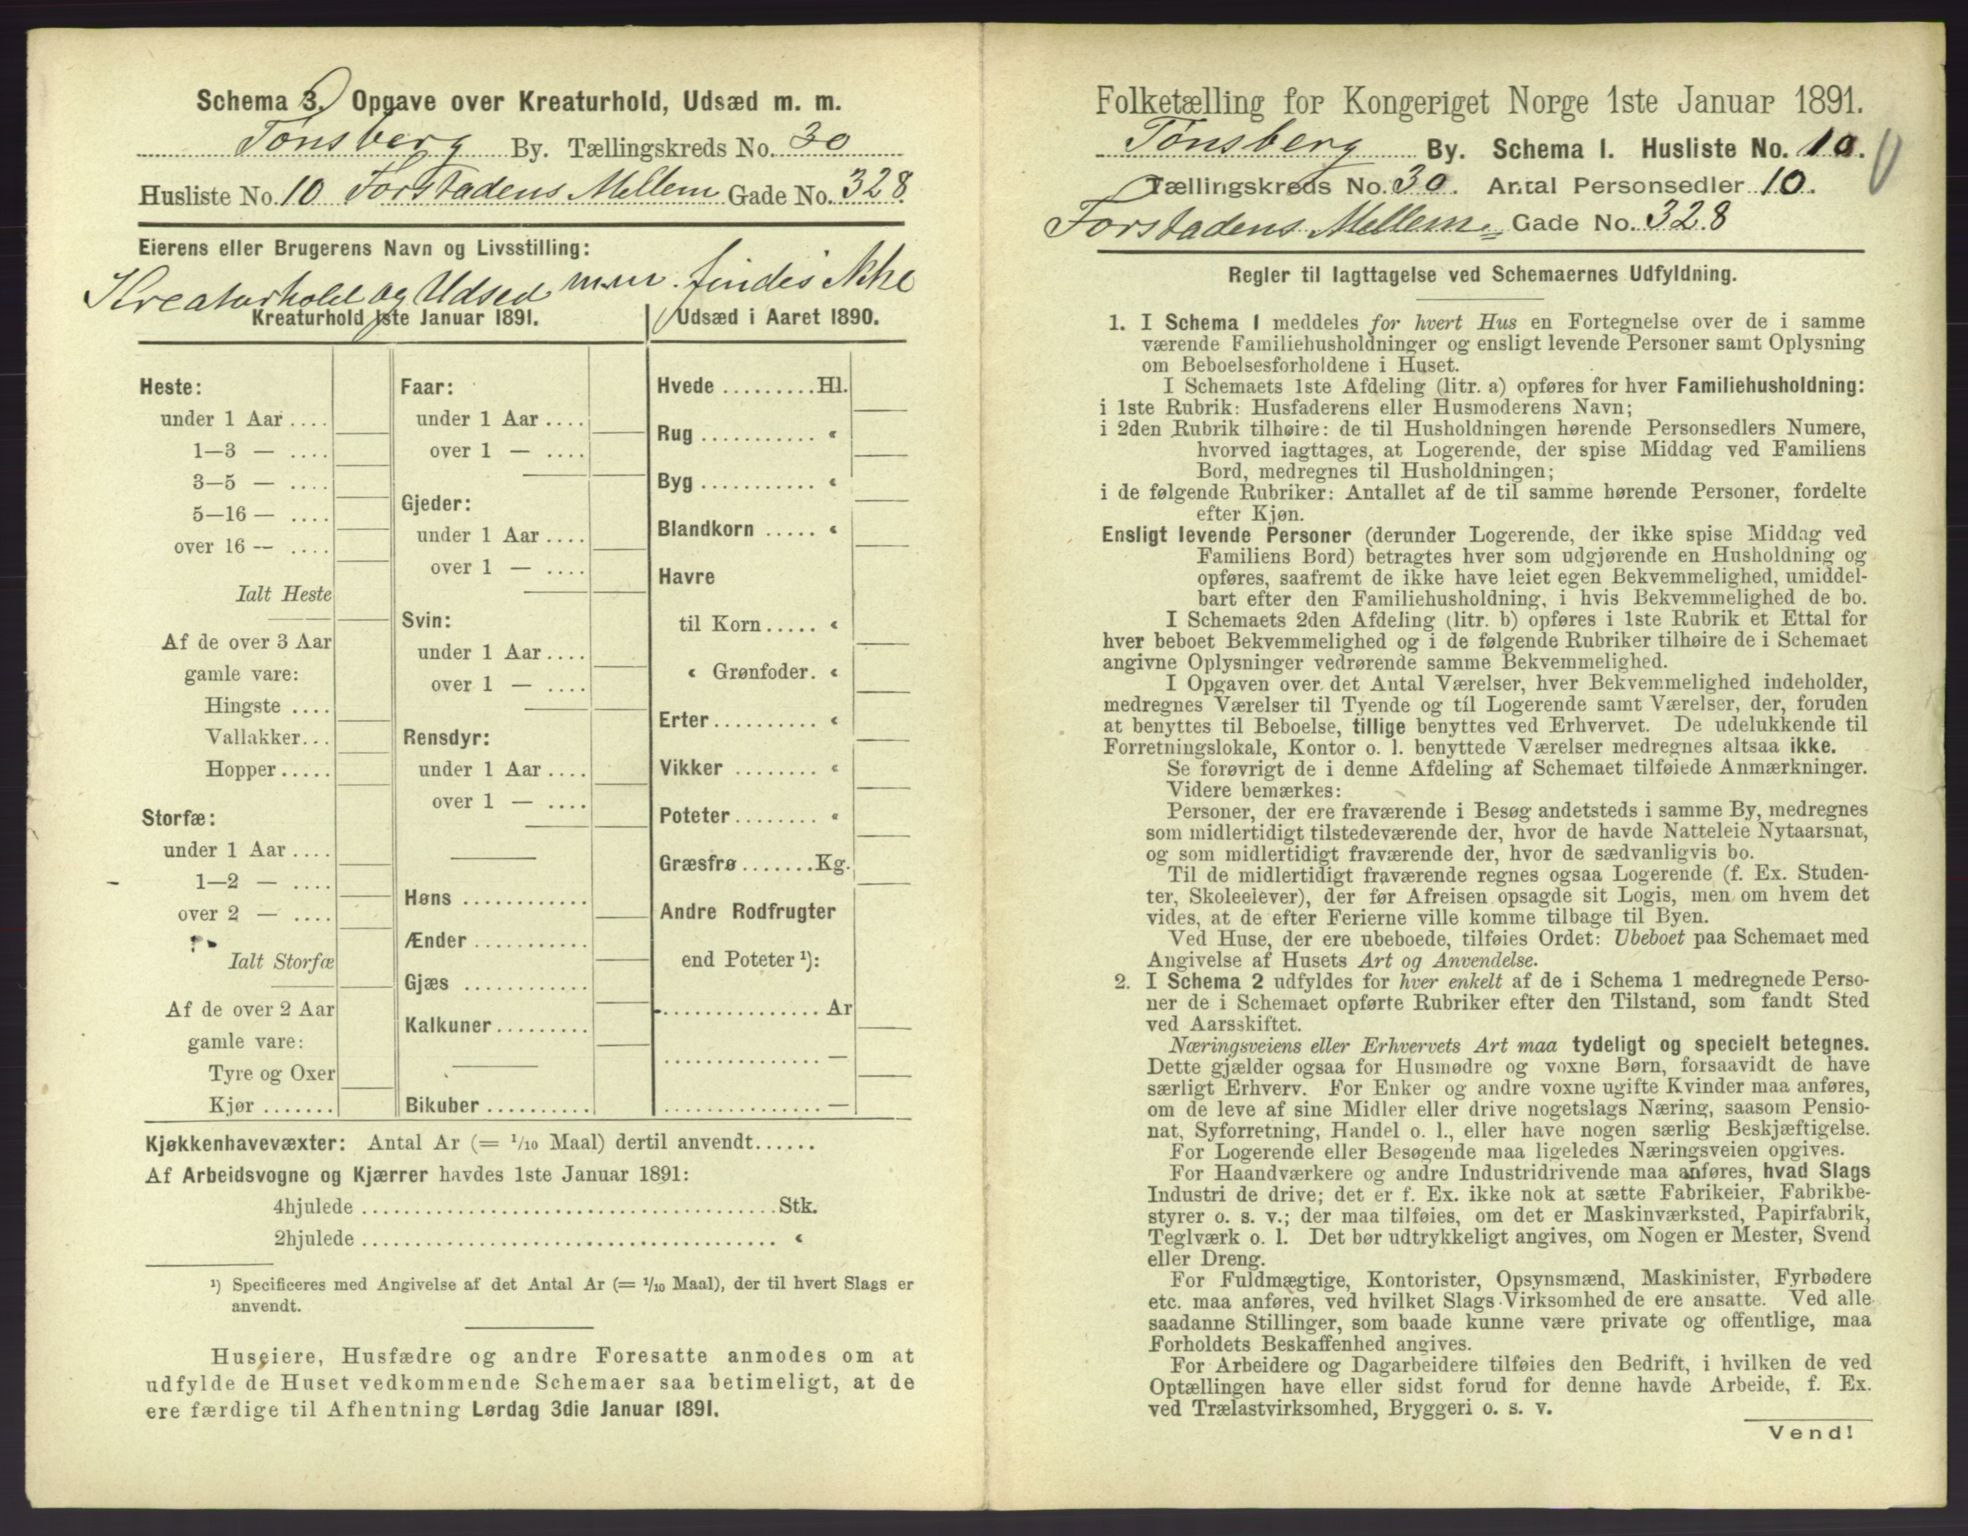 Schema 3. Opgave over Kreaturhold, Udsæd m. m.
Tønsberg By. Tællingskreds No. 30
Husliste No. 10 Forstadens Mellem Gade No. 328.
Eierens eller Brugerens Navn og Livsstilling:
Kreaturhold og Udsed m.m. findes ikke
Kreaturhold 1ste Januar 1891.
Udsæd i Aaret 1890.
Heste:
under 1 Aar ....
1—3 — ....
3—5 — ....
5—16 — ....
over 16 — ....
Ialt Heste
Af de over 3 Aar
gamle vare:
Hingste ....
Vallakker...
Hopper.....
Storfæ:
under 1 Aar ....
1—2 — ....
over 2 — ....
Ialt Storfæ
Af de over 2 Aar
gamle vare:
Tyre og Oxer
Kjør .......
Faar:
under 1 Aar ....
over 1 — ....
Gjeder:
under 1 Aar ....
over 1 — ....
Svin:
under 1 Aar ....
over 1 — ....
Rensdyr:
under 1 Aar ....
over 1 — ....
Høns ............
Ænder ...........
Gjæs ............
Kalkuner.........
Bikuber..........
Hvede .........Hl.
Rug ........... «
Byg ........... «
Blandkorn ..... «
Havre
til Korn..... «
« Grønfoder. «
Erter......... «
Vikker ........ «
Poteter........ «
Græsfrø .......Kg.
Andre Rodfrugter
end Poteter ¹):
................ Ar
................ —
................ —
Kjøkkenhavevæxter: Antal Ar (= 1/10 Maal) dertil anvendt......
Af Arbeidsvogne og Kjærrer havdes 1ste Januar 1891:
4hjulede ........................................Stk.
2hjulede ........................................ «
¹) Specificeres med Angivelse af det Antal Ar (= 1/10 Maal), der til hvert Slags er
anvendt.
Huseiere, Husfædre og andre Foresatte anmodes om at
udfylde de Huset vedkommende Schemaer saa betimeligt, at de
ere færdige til Afhentning Lørdag 3die Januar 1891.
Folketælling for Kongeriget Norge 1ste Januar 1891.
Tønsberg By. Schema I. Husliste No. 10.
Tællingskreds No. 30. Antal Personsedler 10.
Forstadens Mellem Gade No. 328
Regler til Iagttagelse ved Schemaernes Udfyldning.
1. I Schema 1 meddeles for hvert Hus en Fortegnelse over de i samme
værende Familiehusholdninger og ensligt levende Personer samt Oplysning
om Beboelsesforholdene i Huset.
I Schemaets 1ste Afdeling (litr. a) opføres for hver Familiehusholdning:
i 1ste Rubrik: Husfaderens eller Husmoderens Navn;
i 2den Rubrik tilhøire: de til Husholdningen hørende Personsedlers Numere,
hvorved iagttages, at Logerende, der spise Middag ved Familiens
Bord, medregnes til Husholdningen;
i de følgende Rubriker: Antallet af de til samme hørende Personer, fordelte
efter Kjøn.
Ensligt levende Personer (derunder Logerende, der ikke spise Middag ved
Familiens Bord) betragtes hver som udgjørende en Husholdning og
opføres, saafremt de ikke have leiet egen Bekvemmelighed, umiddel-
bart efter den Familiehusholdning, i hvis Bekvemmelighed de bo.
I Schemaets 2den Afdeling (litr. b) opføres i 1ste Rubrik et Ettal for
hver beboet Bekvemmelighed og i de følgende Rubriker tilhøire de i Schemaet
angivne Oplysninger vedrørende samme Bekvemmelighed.
I Opgaven over det Antal Værelser, hver Bekvemmelighed indeholder,
medregnes Værelser til Tyende og til Logerende samt Værelser, der, foruden
at benyttes til Beboelse, tillige benyttes ved Erhvervet. De udelukkende til
Forretningslokale, Kontor o. l. benyttede Værelser medregnes altsaa ikke.
Se forøvrigt de i denne Afdeling af Schemaet tilføiede Anmærkninger.
Videre bemærkes:
Personer, der ere fraværende i Besøg andetsteds i samme By, medregnes
som midlertidigt tilstedeværende der, hvor de havde Natteleie Nytaarsnat,
og som midlertidigt fraværende der, hvor de sædvanligvis bo.
Til de midlertidigt fraværende regnes ogsaa Logerende (f. Ex. Studen-
ter, Skoleelever), der før Afreisen opsagde sit Logis, men om hvem det
vides, at de efter Ferierne ville komme tilbage til Byen.
Ved Huse, der ere ubeboede, tilføies Ordet: Ubeboet paa Schemaet med
Angivelse af Husets Art og Anvendelse.
2. I Schema 2 udfyldes for hver enkelt af de i Schema 1 medregnede Perso-
ner de i Schemaet opførte Rubriker efter den Tilstand, som fandt Sted
ved Aarsskiftet.
Næringsveiens eller Erhvervets Art maa tydeligt og specielt betegnes.
Dette gjælder ogsaa for Husmødre og voxne Børn, forsaavidt de have
særligt Erhverv. For Enker og andre voxne ugifte Kvinder maa anføres,
om de leve af sine Midler eller drive nogetslags Næring, saasom Pensio-
nat, Syforretning, Handel o. l., eller have nogen særlig Beskjæftigelse.
For Logerende eller Besøgende maa ligeledes Næringsveien opgives.
For Haandværkere og andre Industridrivende maa anføres, hvad Slags
Industri de drive; det er f. Ex. ikke nok at sætte Fabrikeier, Fabrikbe-
styrer o. s. v.; der maa tilføies, om det er Maskinværksted, Papirfabrik,
Teglværk o. l. Det bør udtrykkeligt angives, om Nogen er Mester, Svend
eller Dreng.
For Fuldmægtige, Kontorister, Opsynsmænd, Maskinister, Fyrbødere
etc. maa anføres, ved hvilket Slags Virksomhed de ere ansatte. Ved alle
saadanne Stillinger, som baade kunne være private og offentlige, maa
Forholdets Beskaffenhed angives.
For Arbeidere og Dagarbeidere tilføies den Bedrift, i hvilken de ved
Optællingen have eller sidst forud for denne havde Arbeide, f. Ex.
ved Trælastvirksomhed, Bryggeri o. s. v.
Vend!